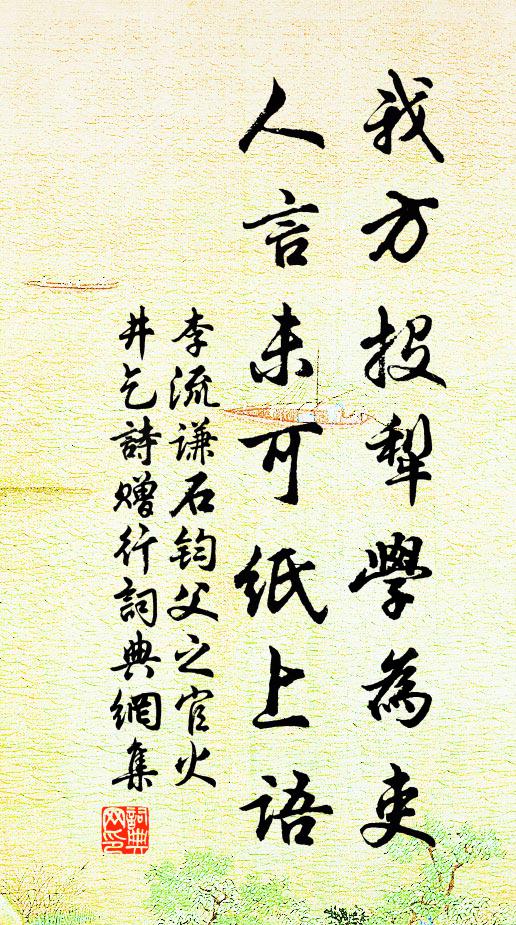 我方投犁學為吏
人言未可紙上語
李流谦石鈞父之官火
井乞詩贈行詞典網集
詞典网印